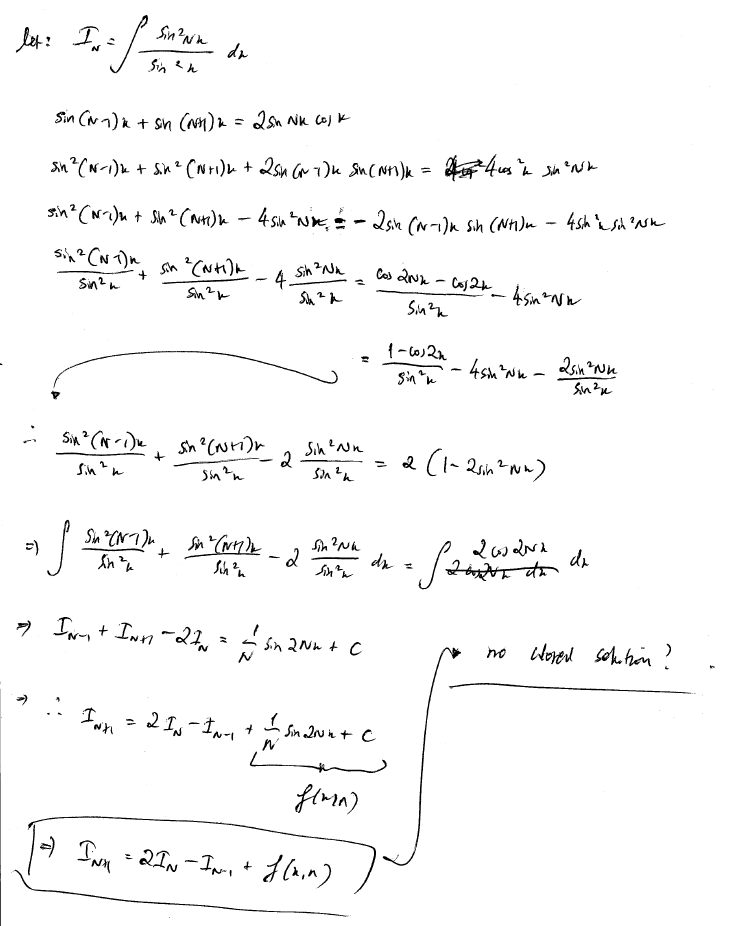 let: I_N = ∫ sin²Nx / sin²x dx
sin(N-1)x + sin(N+1)x = 2sin Nx cos x
sin²(N-1)x + sin²(N+1)x + 2sin(N-1)x sin(N+1)x = 4cos²x sin²Nx
sin²(N-1)x + sin²(N+1)x - 4sin²Nx = -2sin(N-1)x sin(N+1)x - 4sin²x sin²Nx
sin²(N-1)x / sin²x + sin²(N+1)x / sin²x - 4 sin²Nx / sin²x = cos2Nx - cos2x / sin²x - 4sin²Nx
= 1-cos2x / sin²x - 4sin²Nx - 2sin²Nx / sin²x
∴ sin²(N-1)x / sin²x + sin²(N+1)x / sin²x - 2 sin²Nx / sin²x = 2(1-2sin²Nx)
⇒ ∫ sin²(N-1)x / sin²x + sin²(N+1)x / sin²x - 2 sin²Nx / sin²x dx = ∫ 2cos2Nx dx
⇒ I_{N-1} + I_{N+1} - 2I_N = 1/N sin2Nx + C
no closed solution?
⇒ ∴ I_{N+1} = 2I_N - I_{N-1} + 1/N sin2Nx + C
f(x,n)
⇒ I_{N+1} = 2I_N - I_{N-1} + f(x,n)